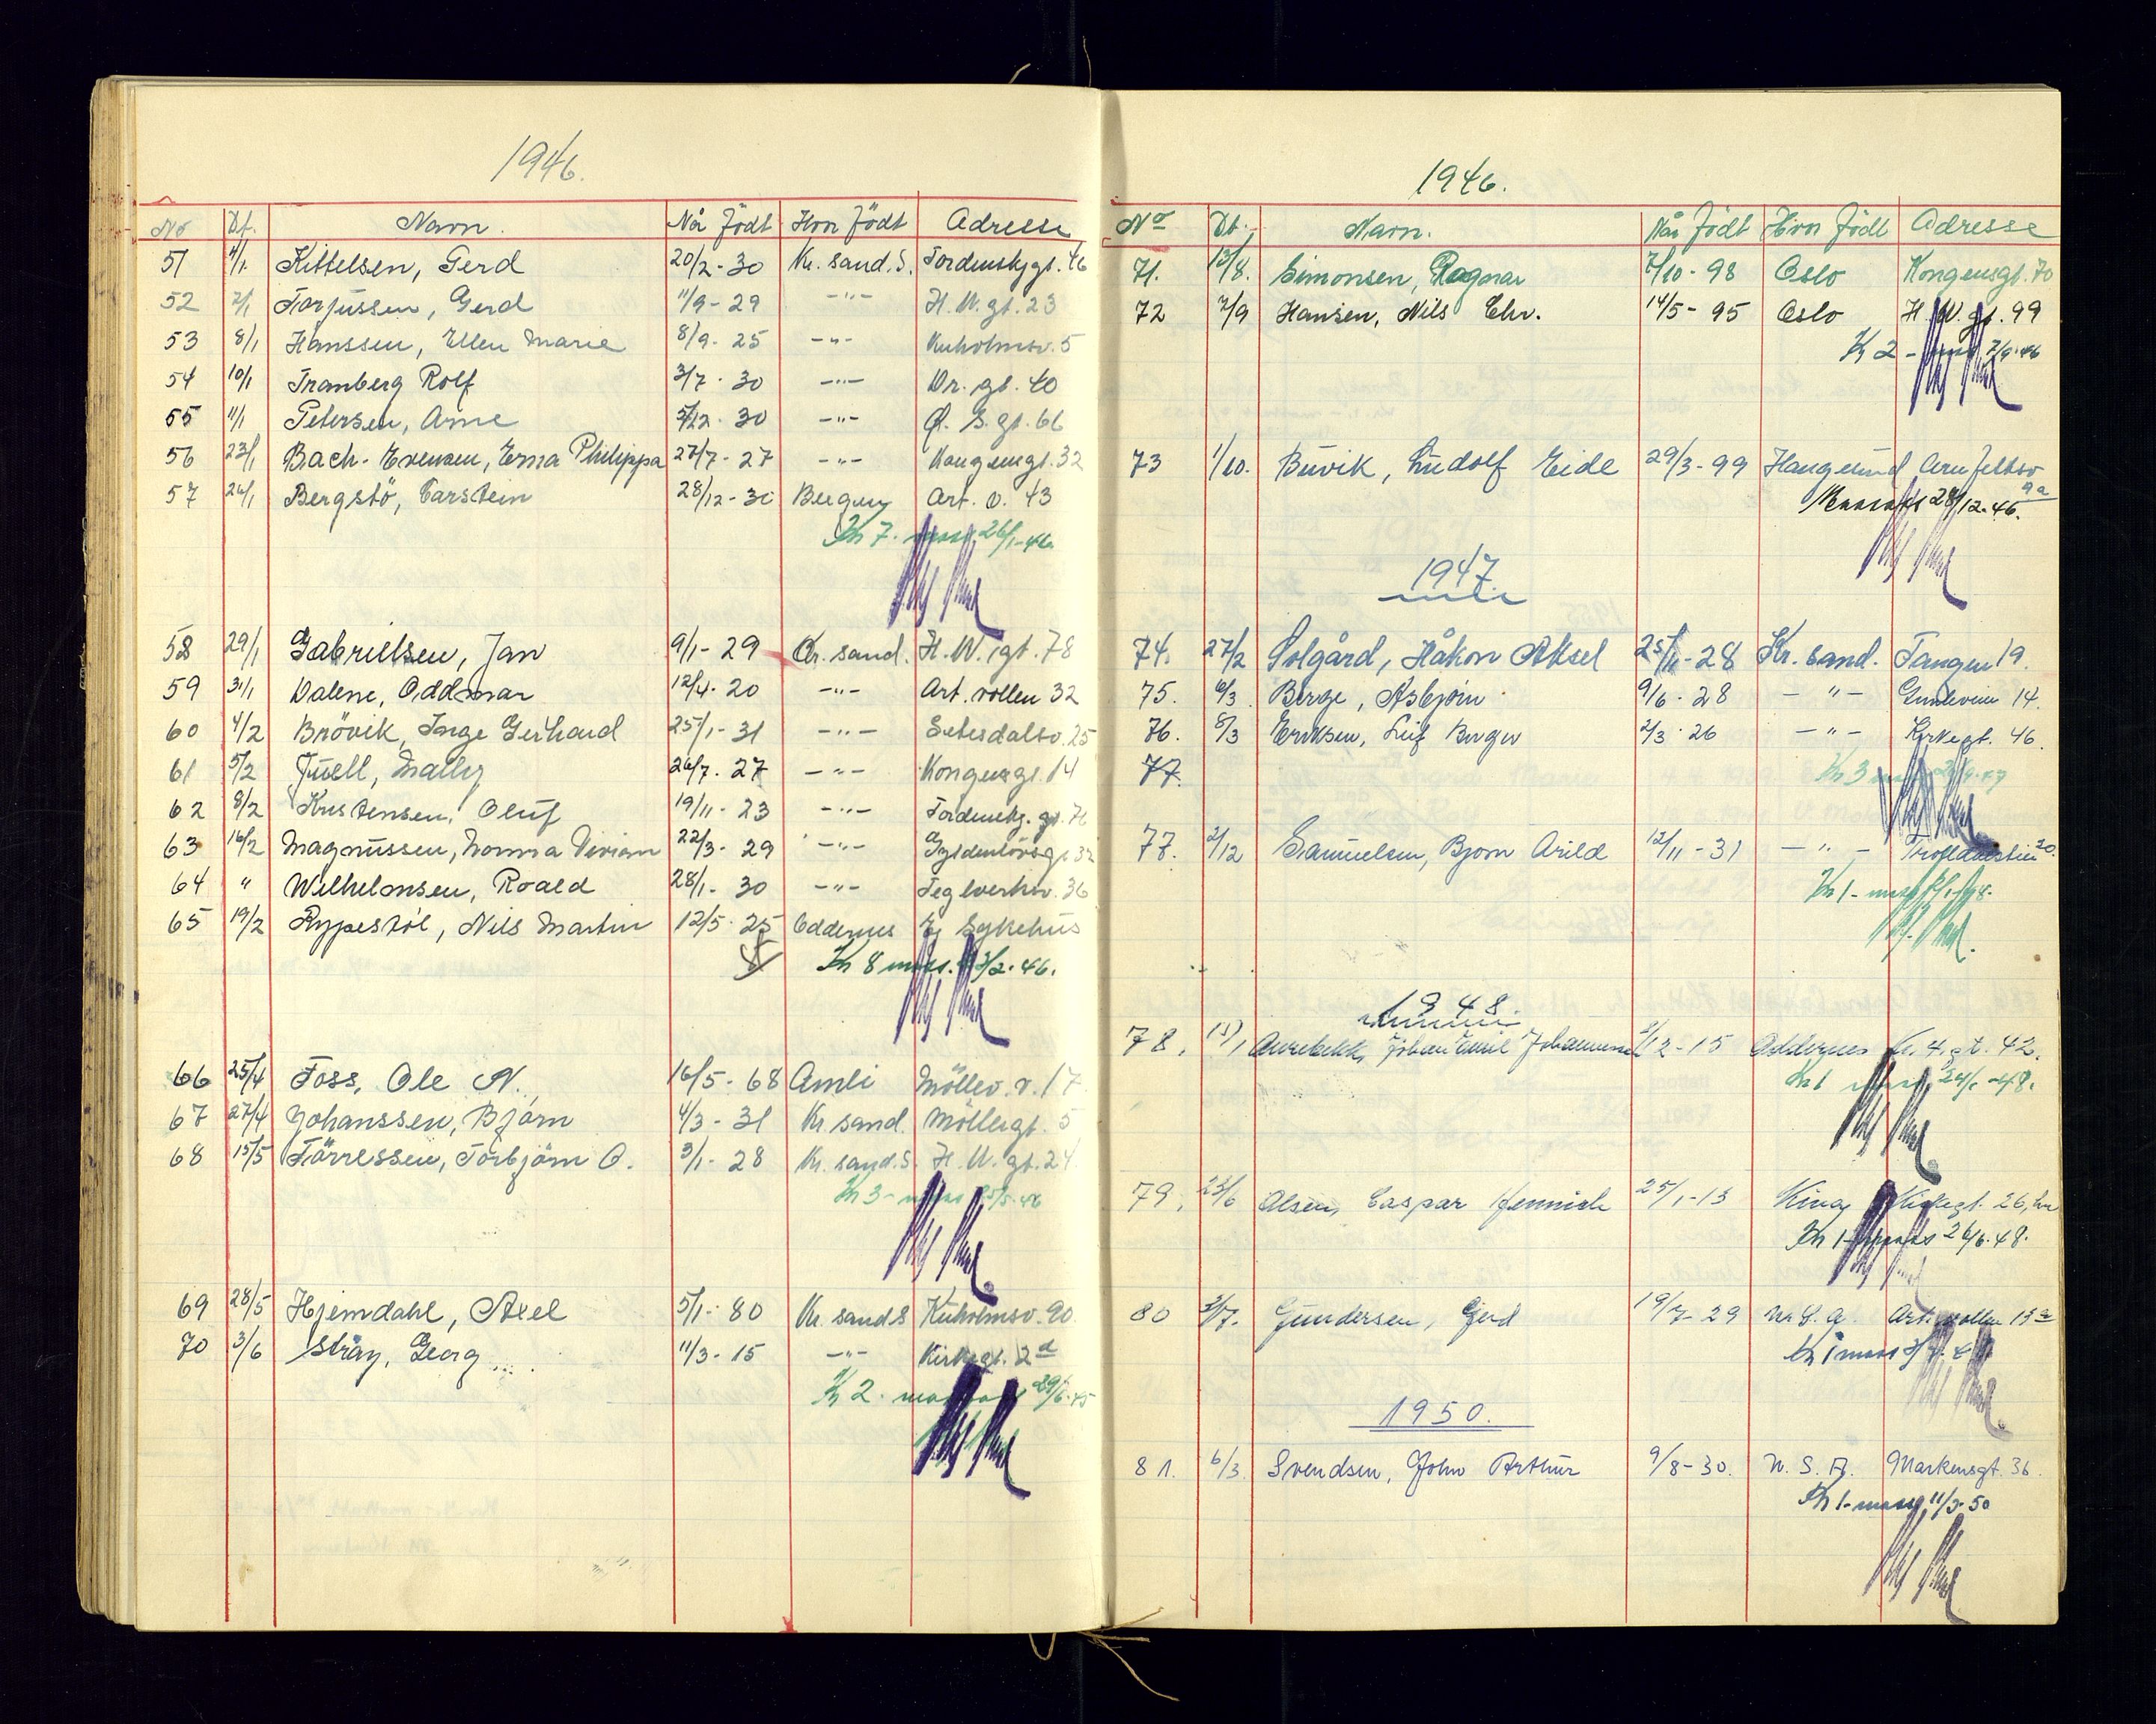 1946.
No Dt. Navn. Når Födt Hvor födt Adresse
51 4/1. Kittelsen, Gerd 20/2-30 Kr. sand. S. Tordenskjgt. 46
52 7/1 Torjussen, Gerd 11/9-29 -"- H. W. gt. 23
53 8/1 Hanssen, Ellen Marie 8/9-25 -"- Kuholmsv. 5
54 10/1 Tranberg Rolf 3/7-30 -"- Dr. gt. 40
55 11/1 Petersen, Arne 5/12-30 -"- Ø. S. gt. 66
56 23/1 Bach-Evensen, Erna Philippa 27/7-27 -"- Kongensgt. 32
57 26/1 Bergstö, Carstein 28/12-30 Bergen Art. v. 43
Kr 7.- 26/1-46
58 29/1 Gabrielsen, Jan 9/1-29 Kr. sand. H. W. gt. 78
59 31/1 Dalene, Oddmar 12/4-20 -"- Art. vollen 32
60 4/2 Brövik, Inge Gerhard 25/1-31 -"- Setesdalsv. 25
61 5/2 Juell, Mally 26/7-27 -"- Kongensgt. 14
62 8/2 Kristensen, Oluf 19/11-23 -"- Tordenskj. gt.
63 16/2 Magnussen, Nonna Vivian 22/3-29 -"- Gyldenlövsgt 32
64 " Wilhelmsen, Roald 28/1-30 -"- Teglverksv. 36
65 19/2 Rypestöl, Nils Martin 12/5-25 Oddernes Ej Sykehus
8 Kr 8 /2-46.
66 25/4 Foss, Ole N. 16/5-68 Amli Möllev. v. 17
67 27/4 Johanssen, Björn 4/3-31 Kr. sand. Möllergt. 5
68 15/5 Törressen, Torbjörn O. 3/1-28 Kr. sand. S. H. W. gt. 24
Kr 3- /5-46
69 28/5 Hjemdahl, Axel 5/1-80 Kr. sand S Kuholmsv. 90
70 3/6 Stray, Georg 11/3-15 -"- Kirkegt. 2d
Kr 2. 29/6-45
1946.
No Dt. Navn. Når födt Hvor födt Adresse
71. 13/8. Simonsen, Ragnar 7/10-98 Oslo Kongensgt. 70
72 7/9 Hansen, Nils Chr. 14/5-95 Oslo H. W. gt. 99
Kr 2 - 7/9-46
73 1/10. Buvik, Ludolf Eide 29/3-99 Haugesund
9a
28/12-46.
1947.
74. 27/2 Solgård, Håkon Aksel 25/11-28 Kr. sand. Tangen 19.
75. 6/3 Berge, Asbjörn 9/6-28 -"- 14.
76. 8/3 Eriksen, Leif Birger 2/3-26 -"- Kirkegt. 46.
77.
Kr 3
77. 2/12 Samuelsen, Bjorn Arild 12/11-31 -"- 20.
Kr 1-
1948.
78. 15/1 Aurebekk, Johan Emil Johannesen /12-15 Oddernes Kr. 4. gt. 42.
Kr 1 24/1-48.
79. 23/6 Olsen, Caspar Jennich 25/1-13 Kina Kirkegt. 26,
Kr 1- 26/6-48.
80 3/7. Gundersen, Gerd 19/7-29 U. S. A. Art. vollen 13a
Kr 1
1950.
81. 6/3. Svendsen, John Arthur 9/8-30. U. S. A. Markensgt. 36.
Kr 1- 11/3-50